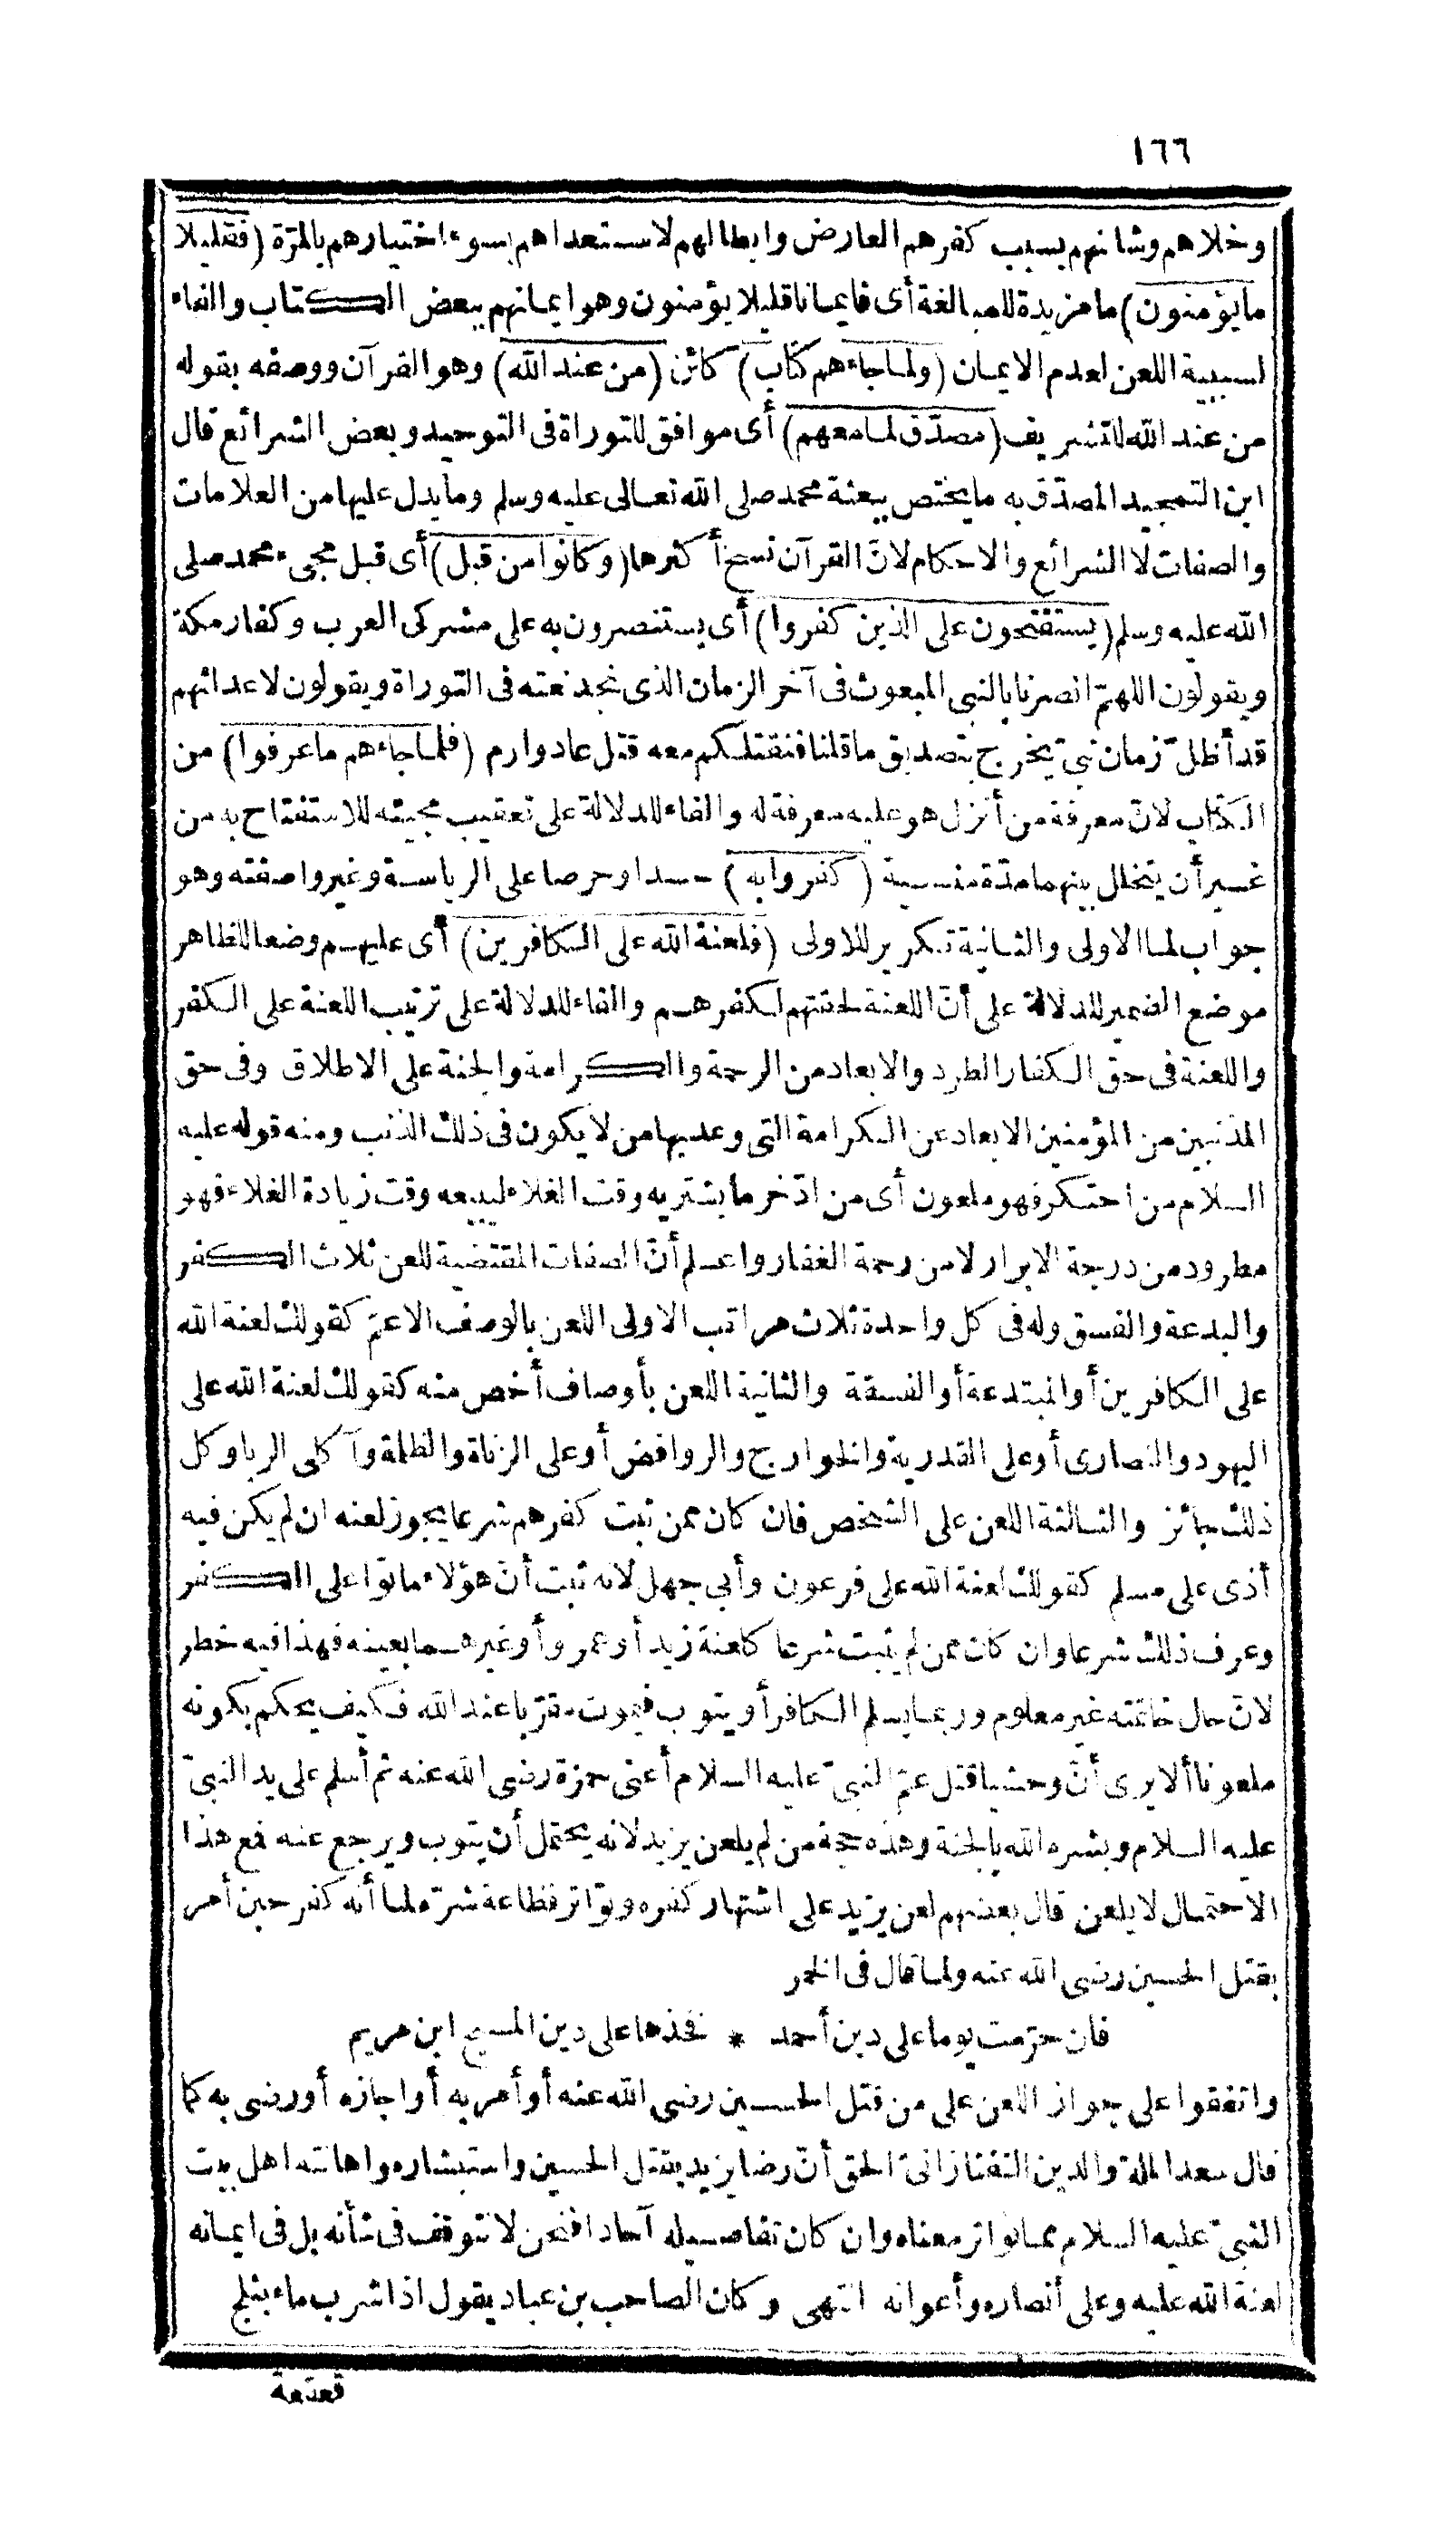 ١٦٦
وخلاهم وشانهم بسبب كفرهم العارض وابطالهم لاستعداهم بسوء اختيارهم بالمرّة (فقليلا
ما يؤمنون) ما مزيدة للمبالغة أى فايمانا قليلا يؤمنون وهو ايمانهم ببعض الكتاب والفاء
لسببية اللعن لعدم الايمان (ولما جاءهم كتاب) كائن (من عند الله) وهو القرآن ووصفه بقوله
من عند الله للتشريف (مصدّق لما معهم) أى موافق للتوراة فى التوحيد وبعض الشرائع قال
ابن التمجيد المصدّق به ما يختص ببعثة محمد صلى الله تعالى عليه وسلم وما يدل عليها من العلامات
والصفات لا الشرائع والاحكام لانّ القرآن نسخ أكثرها (وكانوا من قبل) أى قبل مجىء محمد صلى
الله عليه وسلم (يستفتحون على الذين كفروا) أى يستنصرون به على مشركى العرب وكفار مكة
ويقولون اللهمّ انصرنا بالنبى المبعوث فى آخر الزمان الذى نجد نعته فى التوراة ويقولون لاعدائهم
قد أظلّ زمان نبىّ يخرج بتصديق ما قلنا فنقتلكم معه قتل عاد وارم (فلما جاءهم ما عرفوا) من
الكتاب لانّ معرفة من أنزل هو عليه معرفة له والفاء للدلالة على تعقيب مجيئه للاستفتاح به من
غير أن يتخلل بينهما مدّة منسية (كفروا به) حسدا وحرصا على الرياسة وغيروا صفته وهو
جواب لما الاولى والثانية تكرير للاولى (فلعنة الله على الكافرين) أى عليهم وضعا للظاهر
موضع الضمير للدلالة على أنّ اللعنة لحقتهم لكفرهم والفاء للدلالة على ترتيب اللعنة على الكفر
واللعنة فى حق الكفار الطرد والابعاد من الرحمة والكرامة والجنة على الاطلاق وفى حق
المذنبين من المؤمنين الابعاد عن الكرامة التى وعد بها من لا يكون فى ذلك الذنب ومنه قوله عليه
السلام من احتكر فهو ملعون أى من ادّخر ما يشتريه وقت الغلاء ليبيعه وقت زيادة الغلاء فهو
مطرود من درجة الابرار لا من رحمة الغفار واعلم أنّ الصفات المقتضية للعن ثلاث الكفر
والبدعة والفسق وله فى كل واحدة ثلاث مراتب الاولى اللعن بالوصف الاعمّ كقولك لعنة الله
على الكافرين أو المبتدعة أو الفسقة والثانية اللعن بأوصاف أخص منه كقولك لعنة الله على
اليهود والنصارى أو على القدرية والخوارج والروافض أو على الزناة والظلمة وآكلى الربا وكل
ذلك جائز والثالثة اللعن على الشخص فان كان ممن ثبت كفرهم شرعا يجوز لعنه ان لم يكن فيه
أذى على مسلم كقولك لعنة الله على فرعون وأبى جهل لانه ثبت أنّ هؤلاء ماتوا على الكفر
وعرف ذلك شرعا وان كان ممن لم يثبت شرعا كلعنة زيد أو عمرو أو غيرهما بعينه فهذا فيه خطر
لانّ حال خاتمته غير معلوم وربما يسلم الكافر أو يتوب فيموت مقرّبا عند الله فكيف يحكم بكونه
ملعونا ألا يرى أنّ وحشيا قتل عمّ النبىّ عليه السلام أعنى حمزة رضى الله عنه ثم أسلم على يد النبىّ
عليه السلام وبشره الله بالجنة وهذه حجة من لم يلعن يزيد لانه يحتمل أن يتوب ويرجع عنه فمع هذا
الاحتمال لا يلعن قال بعضهم لعن يزيد على اشتهار كفره وتواتر فظاعة شرّه لما أنه كفر حين أمر
بقتل الحسين رضى الله عنه ولما قال فى الخمر
فان حرّمت يوما على دين أحمد * فخذها على دين المسيح ابن مريم
واتفقوا على جواز اللعن على من قتل الحسين رضى الله عنه أو أمر به أو اجازه أو رضى به كما
قال سعد الملة والدين التفتازانىّ الحق أنّ رضا يزيد بقتل الحسين واستبشاره واهانته اهل بيت
النبىّ عليه السلام مما تواتر معناه وان كان تفاصيله آحادا فنحن لا نتوقف فى شأنه بل فى ايمانه
لعنة الله عليه وعلى أنصاره وأعوانه انتهى وكان الصاحب بن عباد يقول اذا شرب ماء بثلج
قعقعة